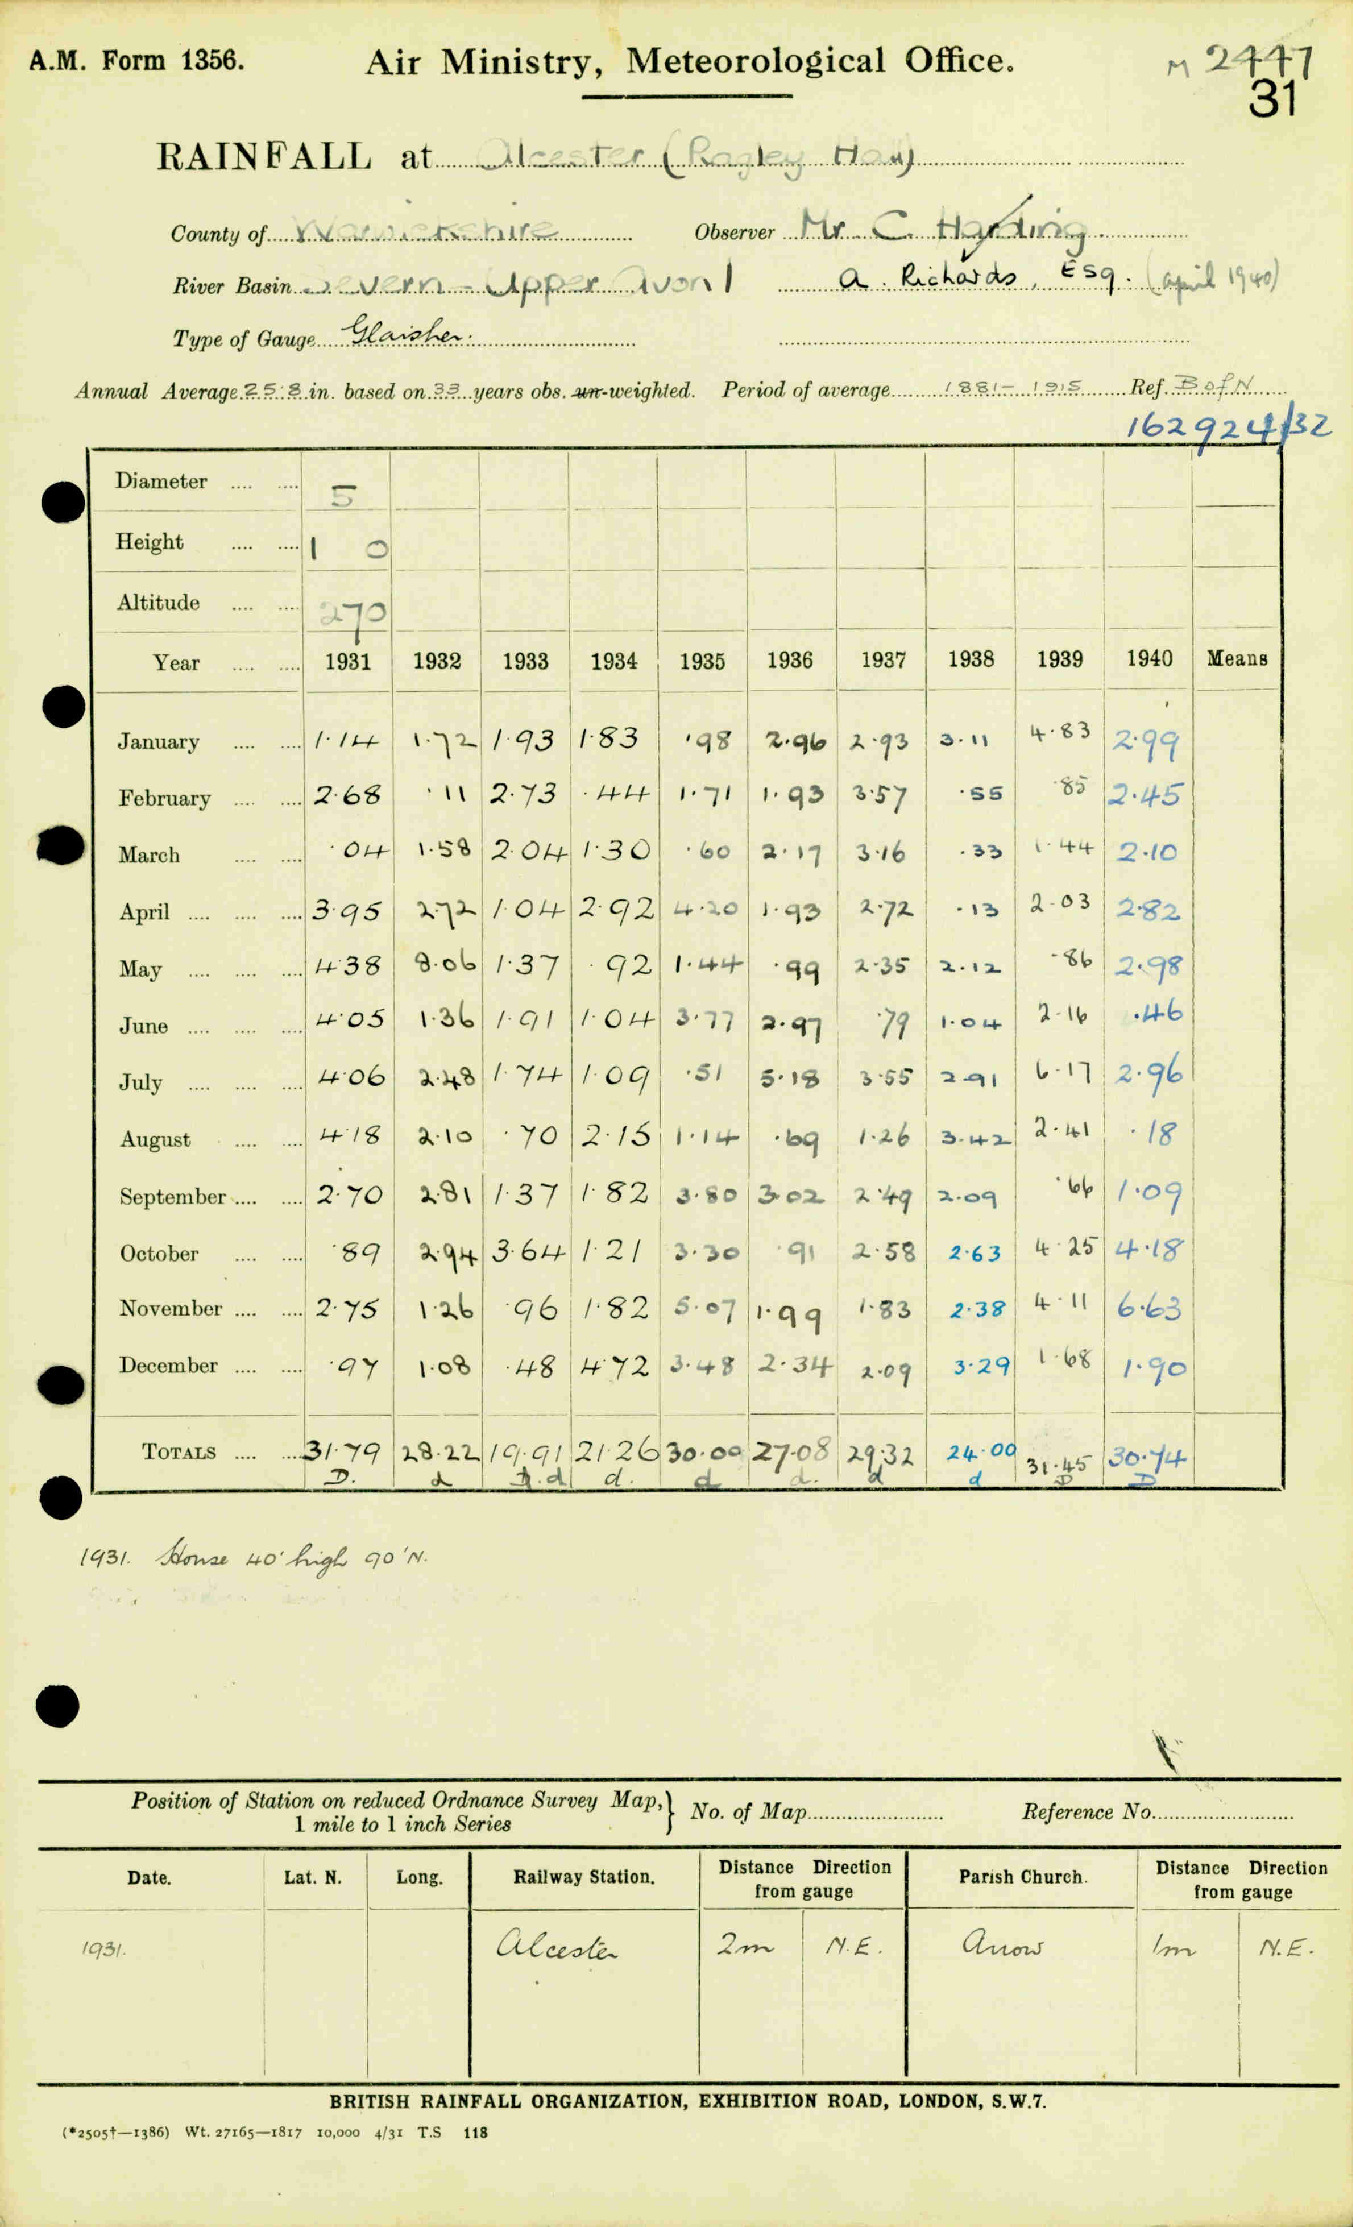 A.M. Form 1356. Air Ministry, Meteorological Office. M 2447
31
RAINFALL at Alcester (Ragley Hall)
County of Warwickshire Observer Mr. C. Harding
River Basin Severn - Upper Avon 1 A. Richards, Esq. (April 1940)
Type of Gauge Glaisher.
Annual Average 25.8 in. based on 33 years obs. un-weighted. Period of average 1881-1915 Ref. B of N
162924/32
Diameter .... .... 5
Height .... .... 1 0
Altitude .... .... 270
Year .... .... 1931 1932 1933 1934 1935 1936 1937 1938 1939 1940 Means
January .... .... 1.14 1.72 1.93 1.83 .98 2.96 2.93 3.11 4.83 2.99
February .... .... 2.68 .11 2.73 .44 1.71 1.93 3.57 .55 .85 2.45
March .... .... .04 1.58 2.04 1.30 .60 2.17 3.16 .33 1.44 2.10
April .... .... .... 3.95 2.72 1.04 2.92 4.20 1.93 2.72 .13 2.03 2.82
May .... .... .... 4.38 8.06 1.37 .92 1.44 .99 2.35 2.12 .86 2.98
June .... .... .... 4.05 1.36 1.91 1.04 3.77 2.97 .79 1.04 2.16 .46
July .... .... .... 4.06 2.48 1.74 1.09 .51 5.18 3.55 2.91 6.17 2.96
August .... .... 4.18 2.10 .70 2.15 1.14 .69 1.26 3.42 2.41 .18
September .... .... 2.70 2.81 1.37 1.82 3.80 3.02 2.49 2.09 .66 1.09
October .... .... .89 2.94 3.64 1.21 3.30 .91 2.58 2.63 4.25 4.18
November .... .... 2.75 1.26 .96 1.82 5.07 1.99 1.83 2.38 4.11 6.63
December .... .... .97 1.08 .48 4.72 3.48 2.34 2.09 3.29 1.68 1.90
TOTALS .... .... 31.79 28.22 19.91 21.26 30.00 27.08 29.32 24.00 31.45 30.74
D. d D.d d. d d. d d D D
1931. House 40' high 90' N.
Position of Station on reduced Ordnance Survey Map,} No. of Map Reference No.
1 mile to 1 inch Series
Date. Lat. N. Long. Railway Station. Distance Direction from gauge Parish Church. Distance Direction from gauge
1931. Alcester 2m N.E. Arrow 1m N.E.
BRITISH RAINFALL ORGANIZATION, EXHIBITION ROAD, LONDON, S.W.7.
(*2505†—1386) Wt. 27165—1817 10,000 4/31 T.S 118